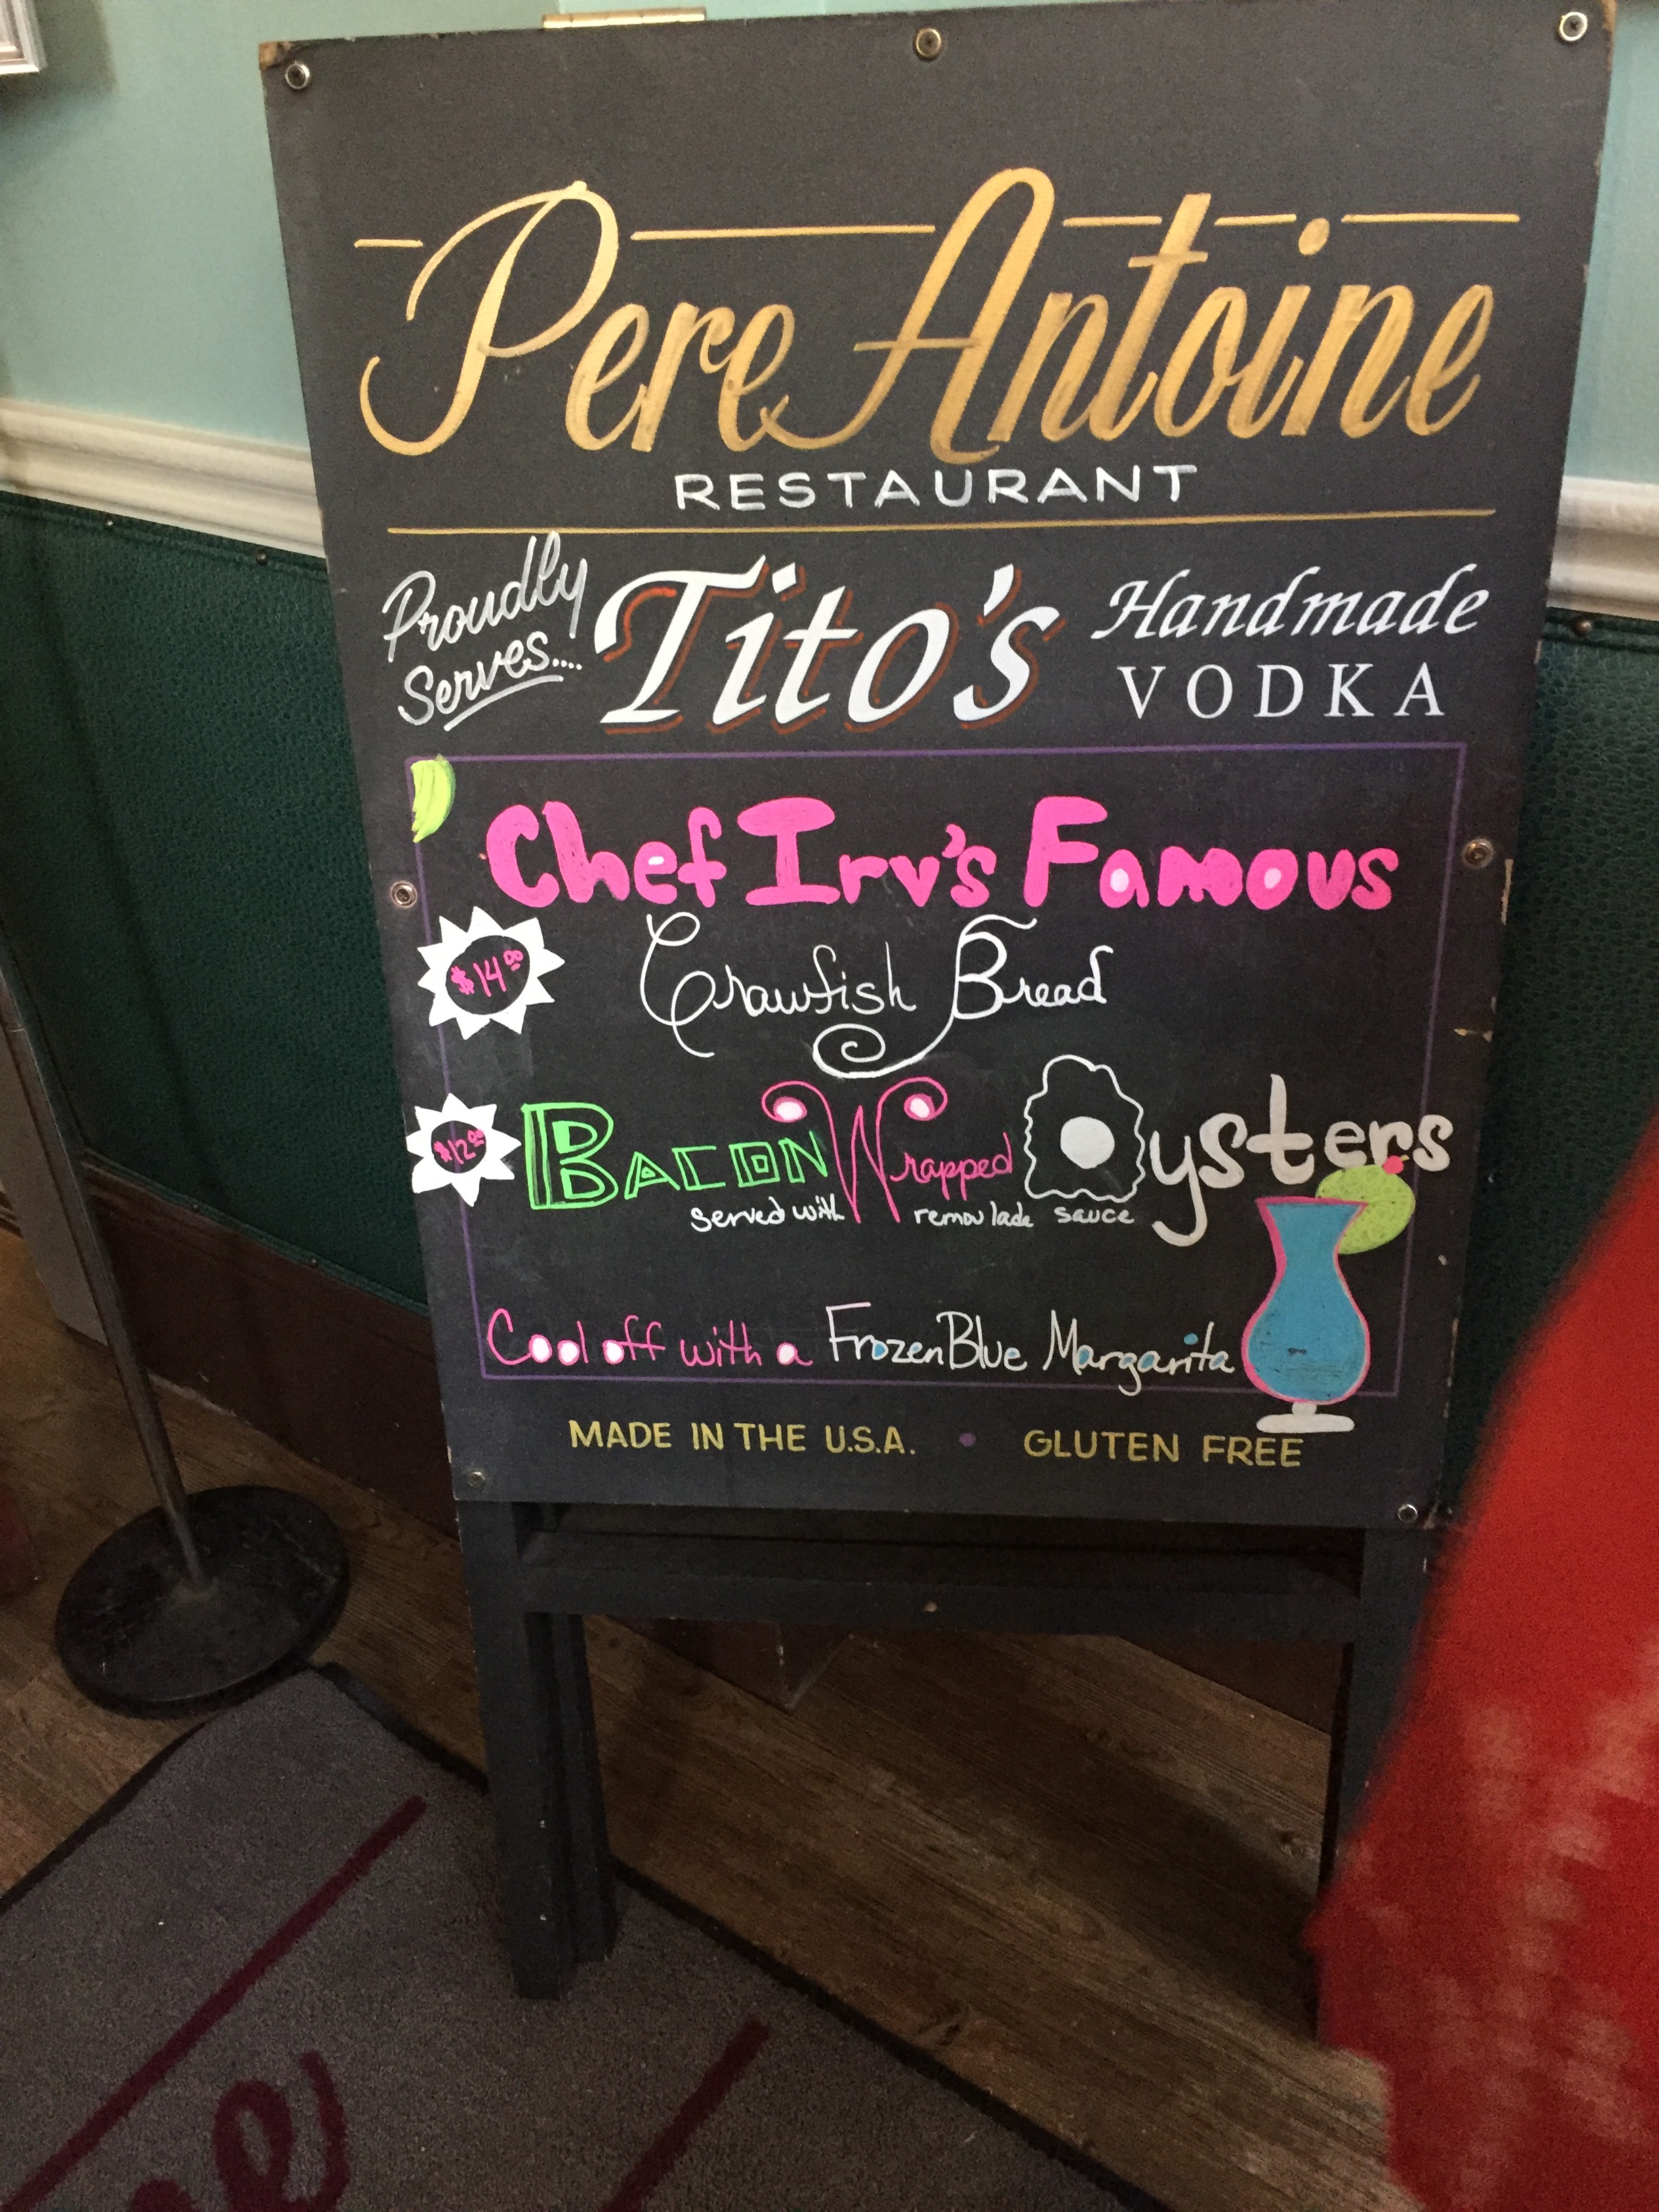 Pere Antoine
RESTAURANT
Proudly
Serves....
Tito's
Handmade
VODKA
Chef Irv's Famous
$14.00
Crawfish Bread
$12.00
Bacon Wrapped Oysters
served with remoulade sauce
Cool off with a Frozen Blue Margarita
MADE IN THE U.S.A. • GLUTEN FREE